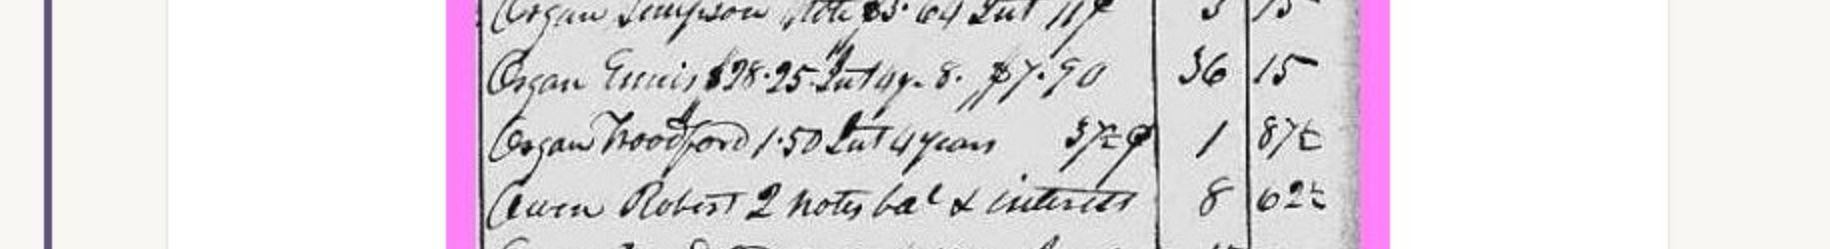 Organ Simpson Note $3.64 Int 11¢ 3 75
Organ Ennis $28.25 Int 4y. 8. $7.90 36 15
Organ Woodford 1.50 Int 4 years 37½ ¢ 1 87½
Owen Robert 2 notes bal & interest 8 62½